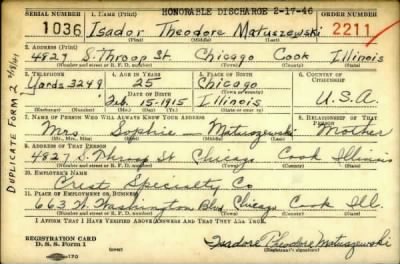 HONORABLE DISCHARGE 2-17-46
SERIAL NUMBER 1. NAME (Print) ORDER NUMBER
1036 Isador Theodore Matuszewski 2211
(First) (Middle) (Last)
2. ADDRESS (Print)
4827 S. Throop St. Chicago Cook Illinois
(Number and street or R. F. D. number) (Town) (County) (State)
3. TELEPHONE 4. AGE IN YEARS 5. PLACE OF BIRTH 6. COUNTRY OF CITIZENSHIP
Yards 3249 25 Chicago
DATE OF BIRTH
Feb. 15-1915 Illinois U.S.A.
7. NAME OF PERSON WHO WILL ALWAYS KNOW YOUR ADDRESS 8. RELATIONSHIP OF THAT PERSON
Mrs. Sophie — Matuszewski Mother
9. ADDRESS OF THAT PERSON
4827 S. Throop St Chicago Cook Illinois
(Number and street or R. F. D. number) (Town) (County) (State)
10. EMPLOYER'S NAME
Crest Specialty Co
11. PLACE OF EMPLOYMENT OR BUSINESS
663 W. Washington Blvd, Chicago Cook Ill.
(Number and street or R. F. D. number) (Town) (County) (State)
I AFFIRM THAT I HAVE VERIFIED ABOVE ANSWERS AND THAT THEY ARE TRUE.
REGISTRATION CARD
D. S. S. Form 1
Isadore Theodore Matuszewski
(Registrant's signature)
DUPLICATE FORM 2